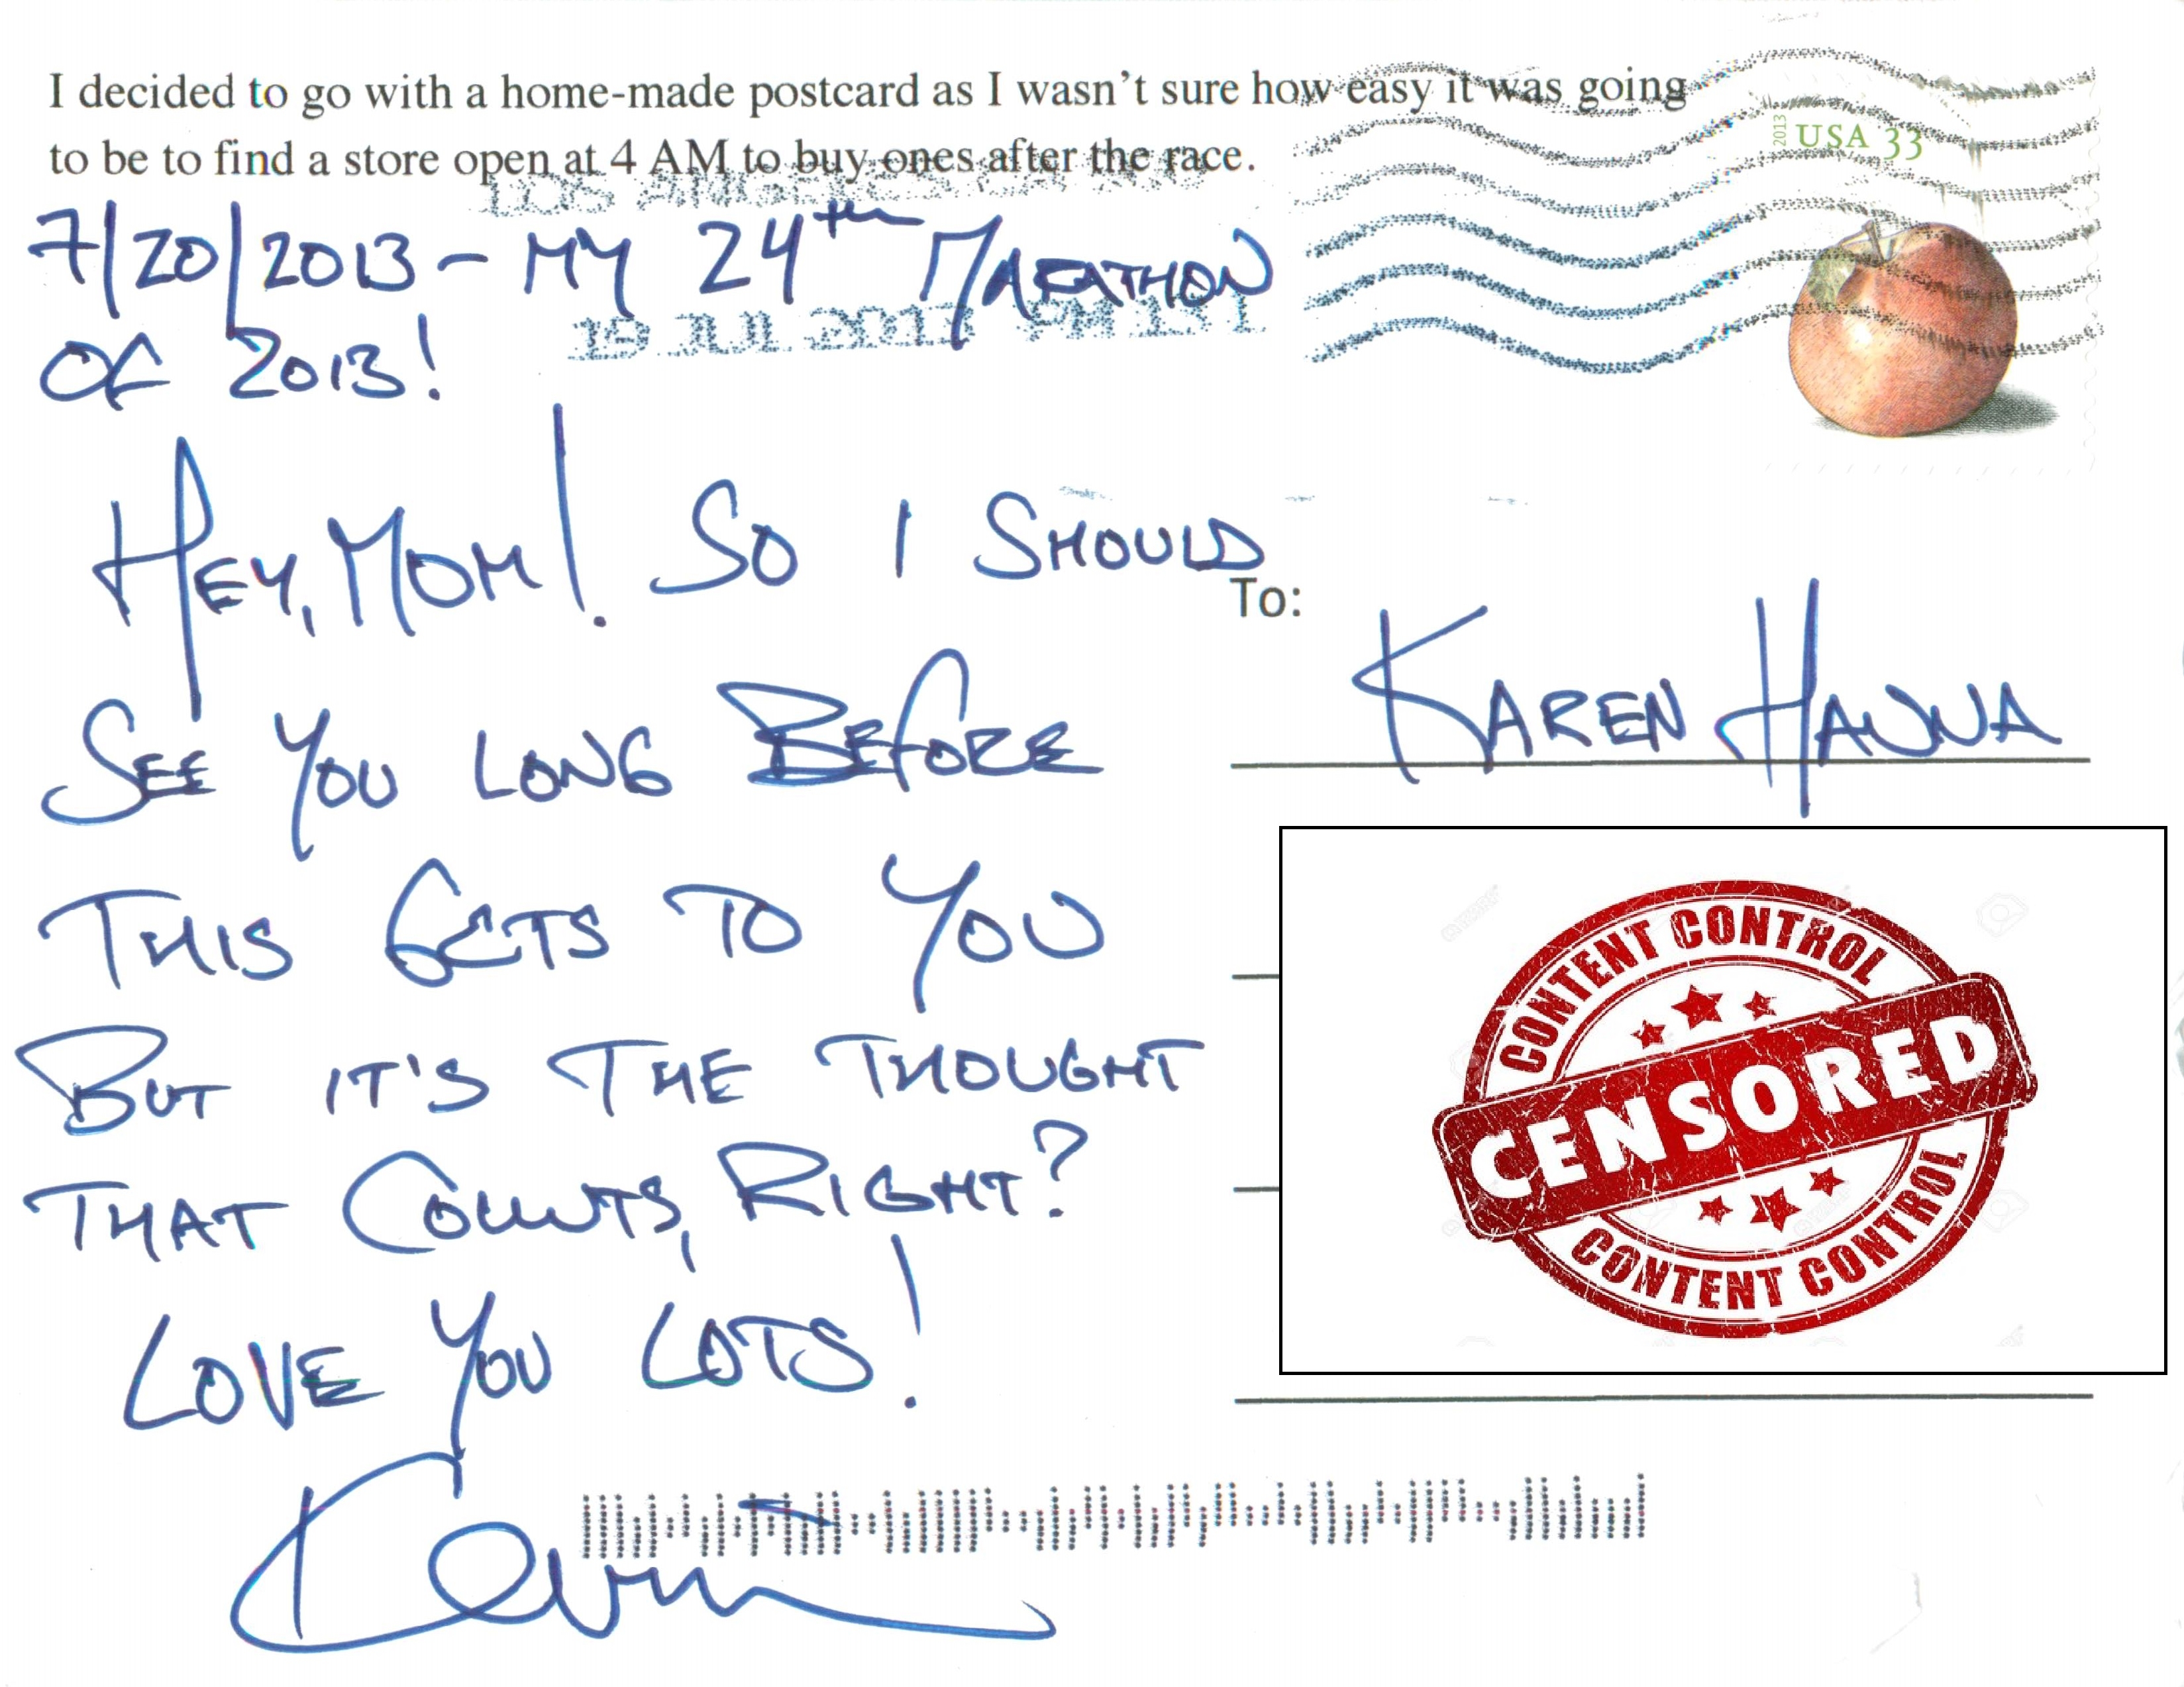 I decided to go with a home-made postcard as I wasn't sure how easy it was going
to be to find a store open at 4 AM to buy ones after the race.
2013
USA 33
LOS ANGELES CA
19 JUL 2013 PM 13 L
7/20/2013 - MY 24th MARATHON
OF 2013!
HEY, MOM! SO I SHOULD
SEE YOU LONG BEFORE
THIS GETS TO YOU
BUT IT'S THE THOUGHT
THAT COUNTS, RIGHT?
LOVE YOU LOTS!
Kevin
To:
KAREN HANNA
CONTENT CONTROL
CENSORED
CONTENT CONTROL